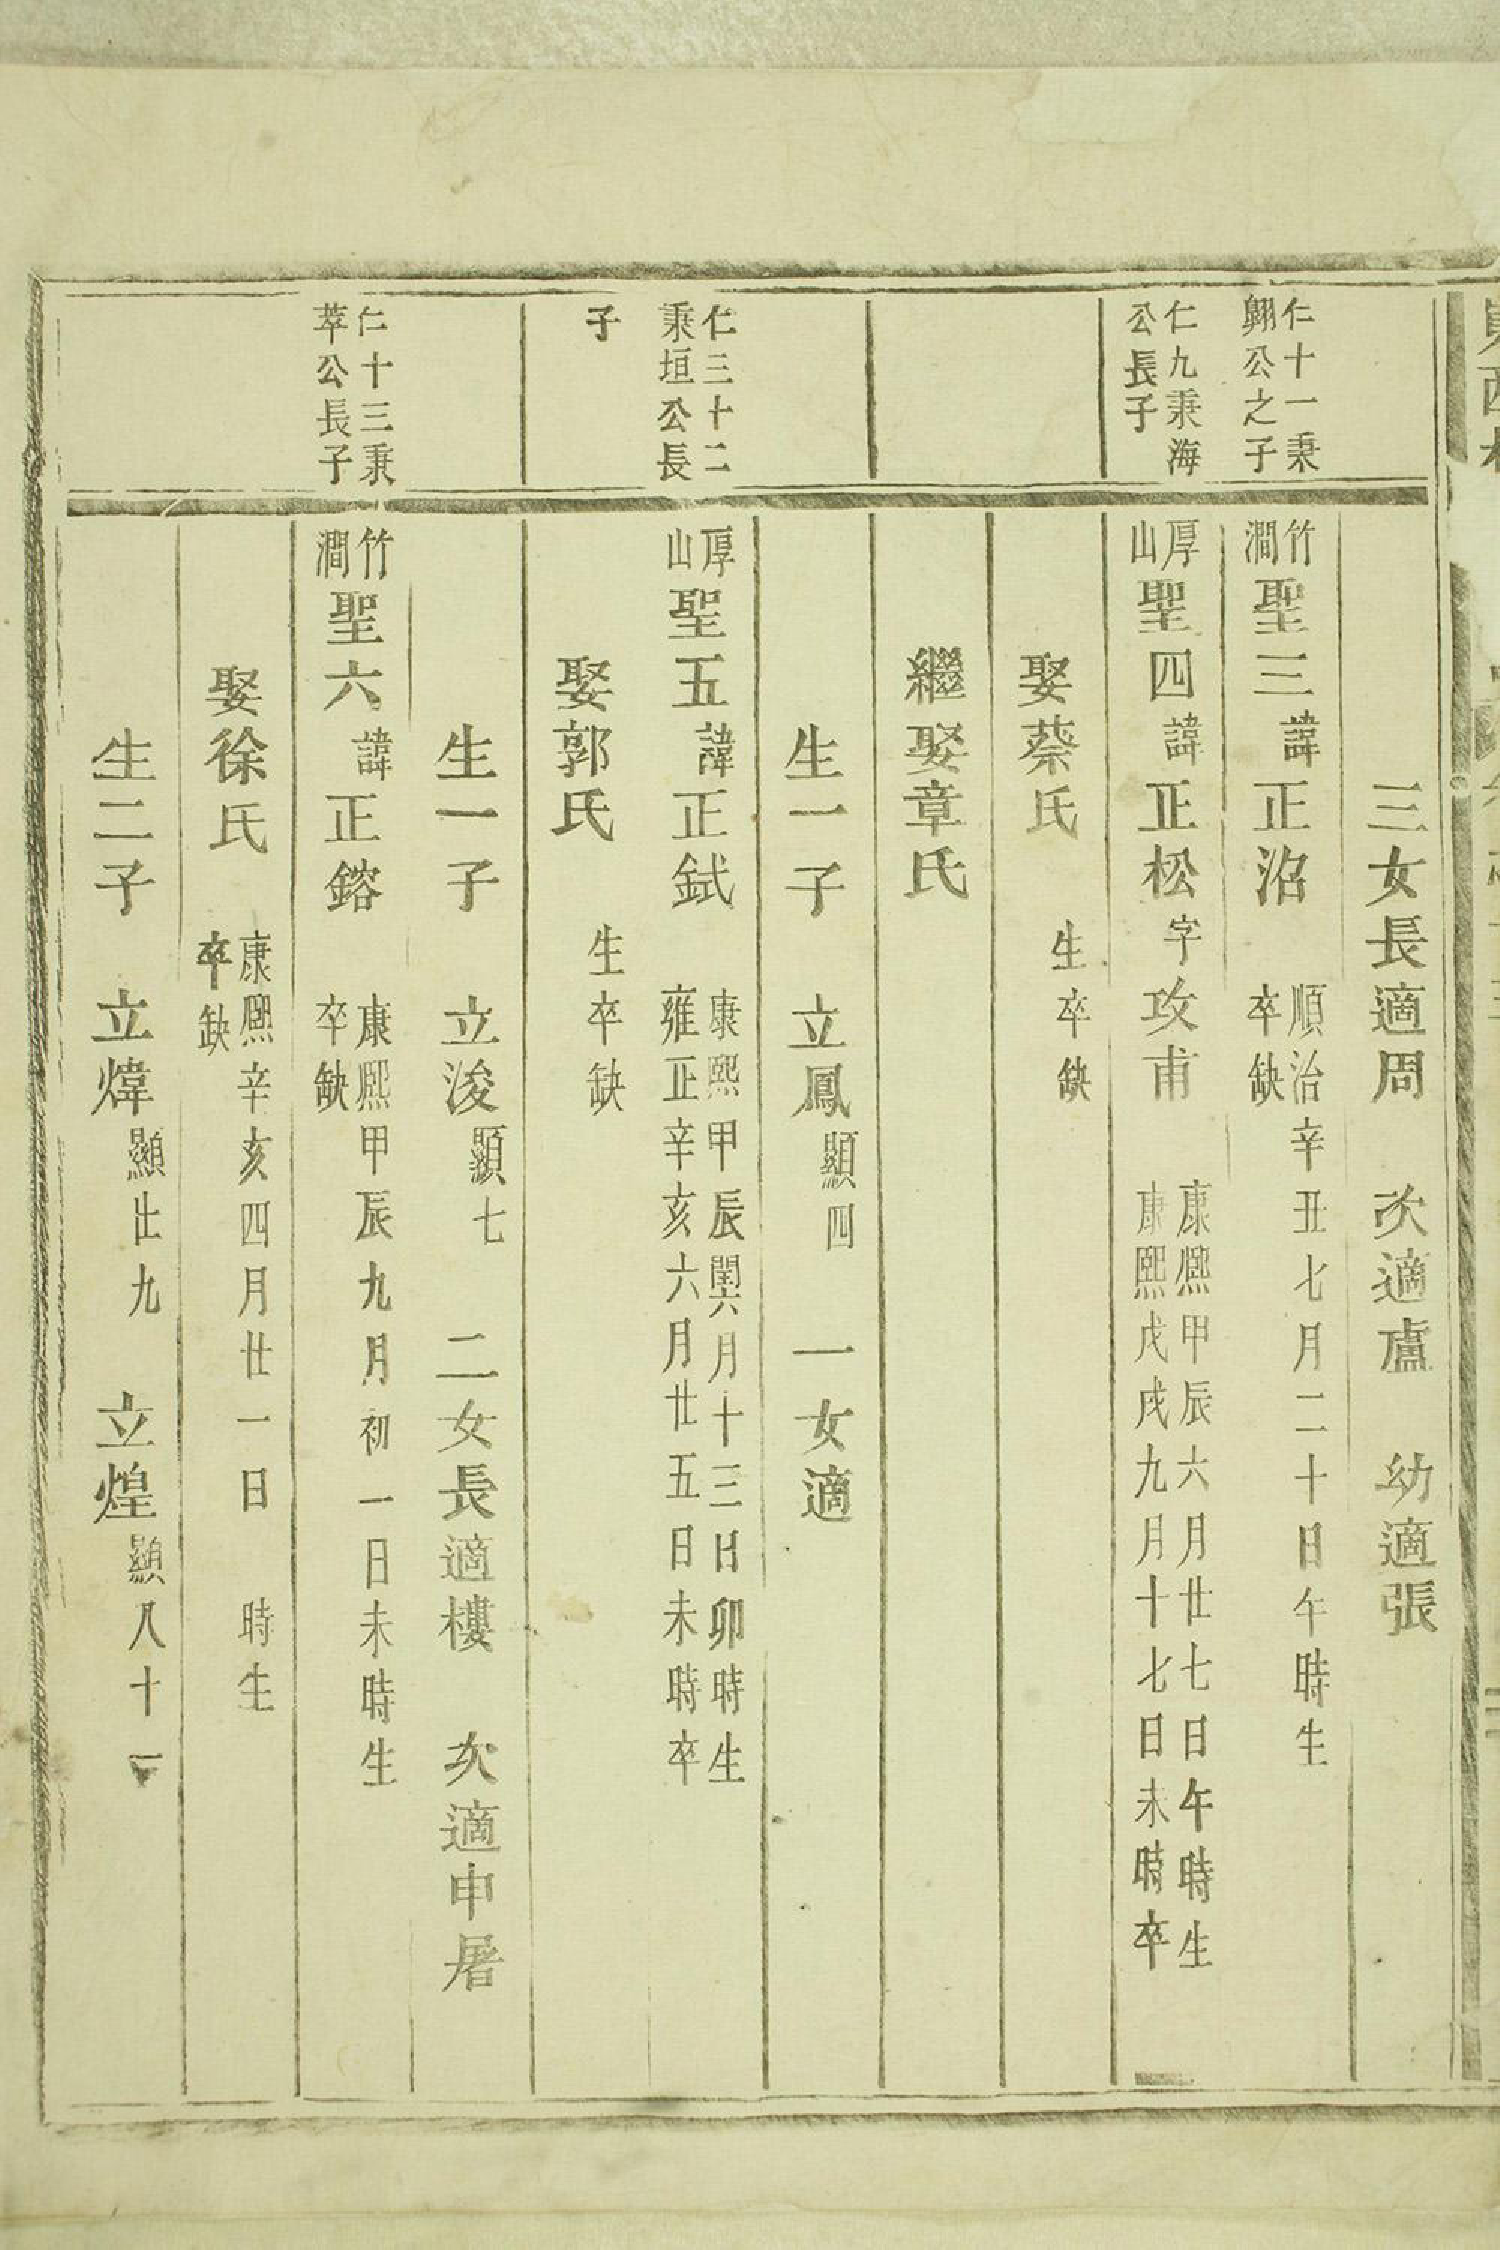 三女長適周　次適盧　幼適張
仁十一秉
翺公之子
竹
澗
聖三諱正洺
順治辛丑七月二十日午時生
卒缺
仁九秉海
公長子
厚
山
聖四諱正松字攻甫
康熙甲辰六月廿七日午時生
康熙戊戌九月十七日未時卒
娶蔡氏　生卒缺
繼娶章氏
生一子　立鳳顯四　一女適
仁三十二
秉垣公長
子
厚
山
聖五諱正鉽
康熙甲辰閏六月十三日卯時生
雍正辛亥六月廿五日未時卒
娶郭氏　生卒缺
生一子　立浚顯七　二女長適樓　次適申屠
仁十三秉
萃公長子
竹
澗
聖六諱正鎔
康熙甲辰九月初一日未時生
卒缺
娶徐氏
康熙辛亥四月廿一日　時生
卒缺
生二子　立煒顯廿九　立煌顯八十一